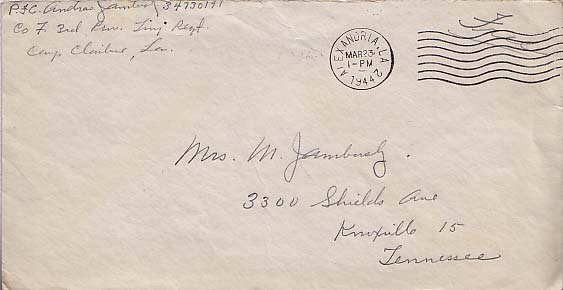 Pfc. Andras 34730191
Co F. 3rd Regt
Camp Claiborne, La.
ALEXANDRIA, LA
MAR 23
1-PM
1944
Free
Mrs. M. Jambersly.
3300 Shields Ave
Knoxville 15
Tennessee